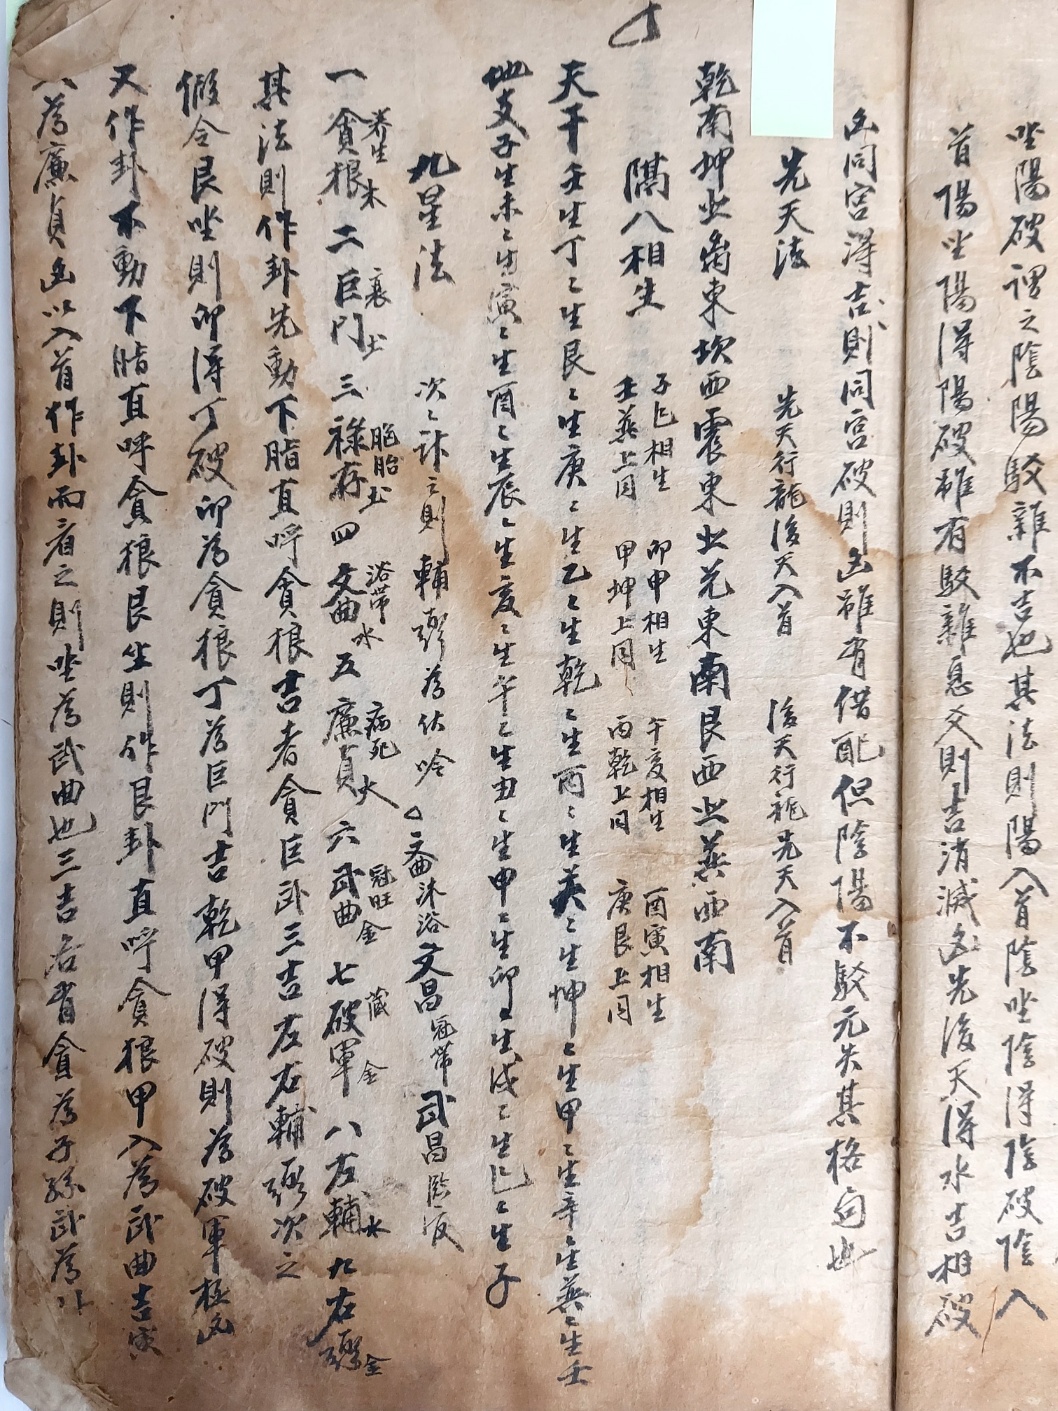 坐陽破謂之陰陽駁雜不吉也其法則陽入首陰坐陰得陰破陰入
首陽坐陽得陽破雖有駁雜息交則吉消滅凶先後天得水吉相破
凶同宮得吉則同宮破則凶雖有借配但陰陽不駁元失其格句也
先天法 先天行龍後天入首 後天行龍先天入首
乾南坤北离東坎西震東北兌東南艮西北巽西南
隔八相生 子巳相生 卯申相生 午亥相生 酉寅相生
壬巽上同 甲坤上同 丙乾上同 庚艮上同
天干壬生丁ミ生艮ミ生庚ミ生乙ミ生乾ミ生丙ミ生巽ミ生坤ミ生甲ミ生辛ミ生巽ミ生壬
地支子生未ミ生寅ミ生酉ミ生辰ミ生亥ミ生午ミ生丑ミ生申ミ生卯ミ生戌ミ生巳ミ生子
九星法 次ミ計之則輔弼為伏吟 文曲沐浴文昌冠帶武昌
一貪狼 養生木 二巨門 衰土 三祿存 胞胎土 四文曲 浴帶水 五廉貞 病死火 六武曲 冠旺金 七破軍 藏金 八左輔 水 九右弼 金
其法則作卦先動下脂直呼貪狼吉者貪巨武三吉左右輔弼次之
假令艮坐則卯得丁破卯為貪狼丁為巨門吉乾甲得破則為破軍極凶
又作卦不動下脂直呼貪狼艮坐則作艮卦直呼貪狼甲入為武曲吉寅
入為廉貞凶以入首作卦而看之則坐為武曲也三吉右肖貪為子孫武為